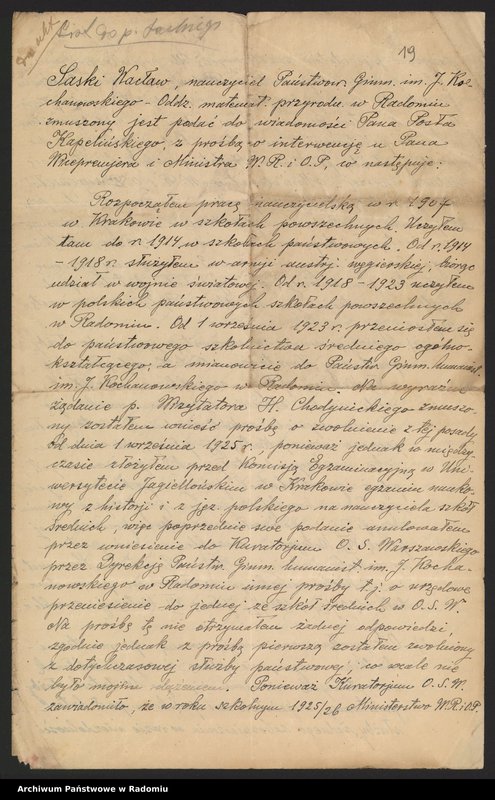 19
Saski Wacław, nauczyciel Państwow. Gimn. im. J. Ko-
chanowskiego - Oddz. matemat. przyrodn. w Radomiu
zmuszony jest podać do wiadomości Pana Posła
Kapelińskiego, z prośbą o interwencję u Pana
Wicepremjera i Ministra W.R. i O.P., co następuje:
Rozpocząłem pracę nauczycielską w r. 1907
w Krakowie w szkołach powszechnych. Uczyłem
tam do r. 1914, w szkołach państwowych. Od r. 1914
- 1918 r. służyłem w armji austrj. węgierskiej, biorąc
udział w wojnie światowej. Od r. 1918 - 1923 uczyłem
w polskich państwowych szkołach powszechnych
w Radomiu. Od 1 września 1923 r. przeniosłem się
do państwowego szkolnictwa średniego ogólno-
kształcącego, a mianowicie do Państw. Gimn. humanist.
im. J. Kochanowskiego w Radomiu. Na wyraźne
żądanie p. Wizytatora H. Chodynickiego zmuszo-
ny zostałem wnieść prośbę o zwolnienie z tej posady
od dnia 1 września 1925 r.; ponieważ jednak w między-
czasie złożyłem przed Komisją Egzaminacyjną w Uni-
wersytecie Jagiellońskim w Krakowie egzamin nauko-
wy z historji i z jęz. polskiego na nauczyciela szkół
średnich, więc poprzednie swe podanie anulowałem
przez wniesienie do Kuratorjum O. S. Warszawskiego
przez Dyrekcję Państw. Gimn. humanist. im. J. Kocha-
nowskiego w Radomiu innej prośby t.j. o urzędowe
przeniesienie do jednej ze szkół średnich w O. S. W.
Na prośbę tę nie otrzymałem żadnej odpowiedzi,
zgodnie jednak z prośbą pierwszą zostałem zwolniony
z dotychczasowej służby państwowej, co wcale nie
było mojem życzeniem. Ponieważ Kuratorjum O. S. W.
zawiadomiło, że w roku szkolnym 1925/26 Ministerstwo W.R. i O.P.
Archiwum Państwowe w Radomiu